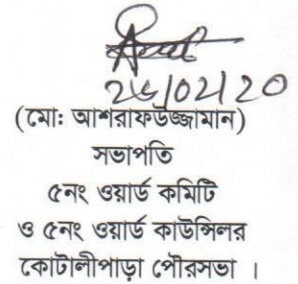 /02/20
(মোঃ আশরাফউজ্জামান)
সভাপতি
৫নং ওয়ার্ড কমিটি
ও ৫নং ওয়ার্ড কাউন্সিলর
কোটালীপাড়া পৌরসভা ।